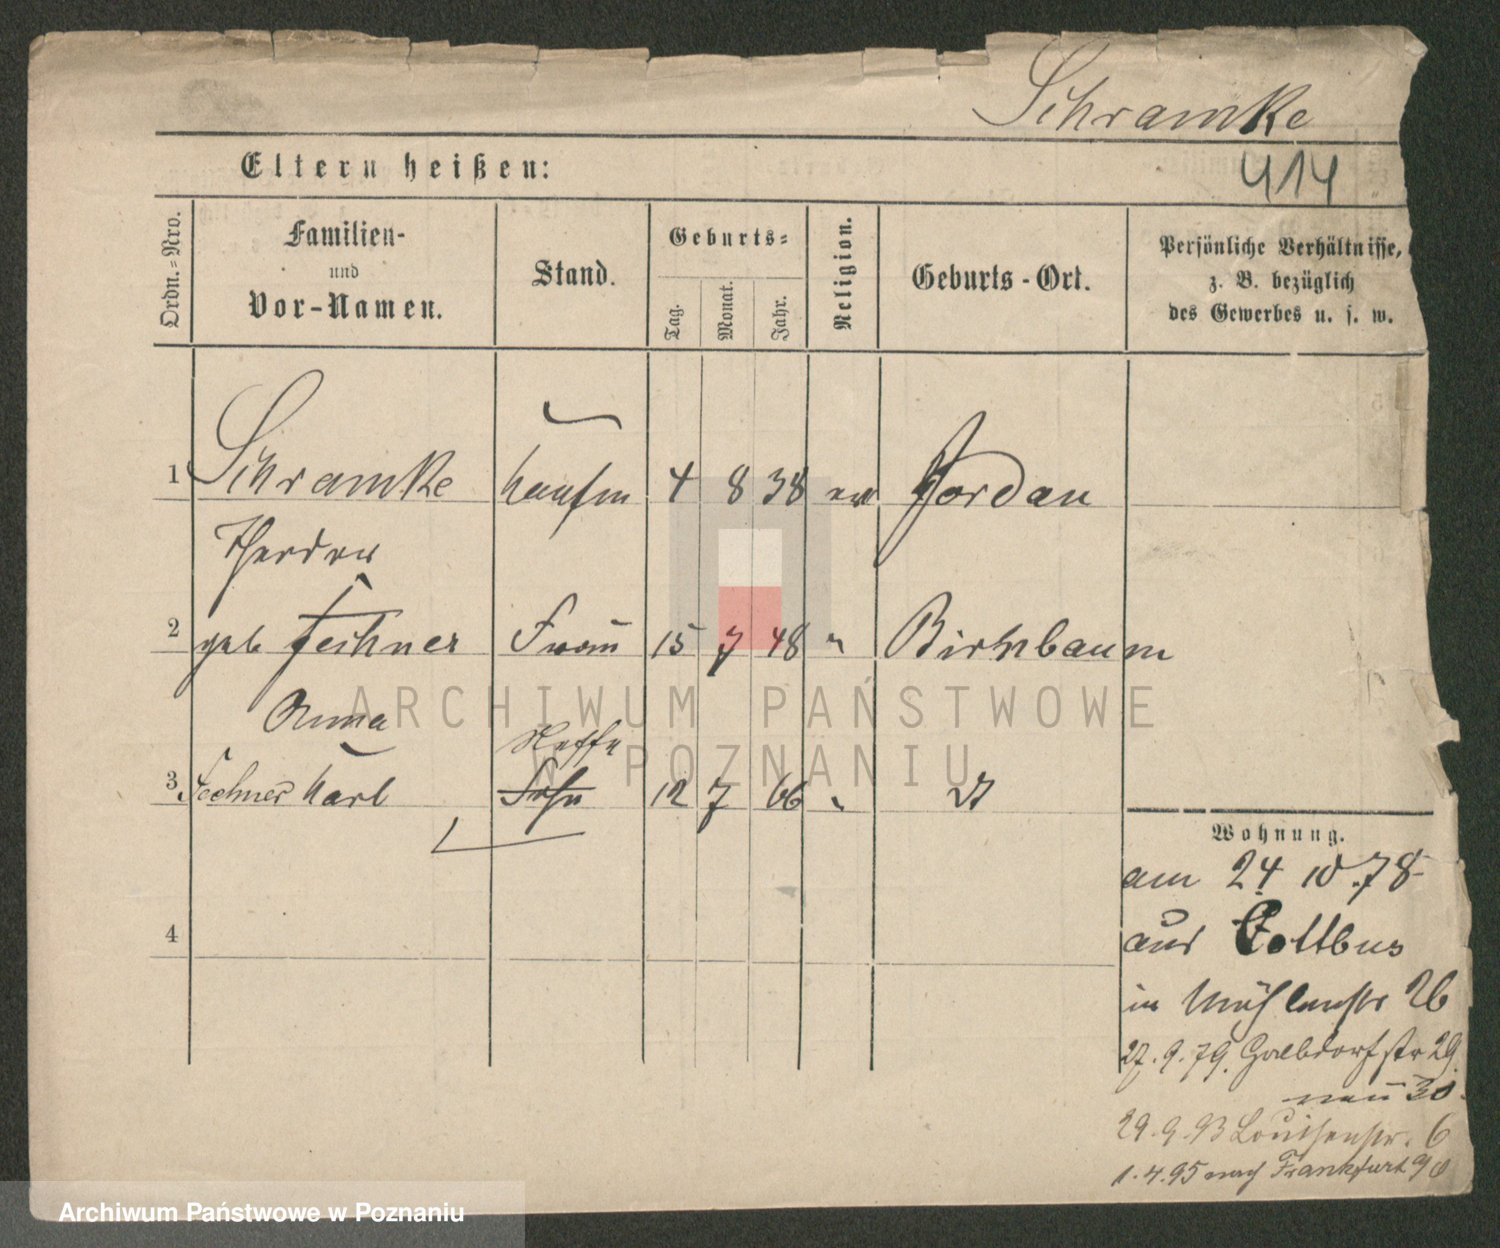 Schramke
414
Eltern heißen:
Ordn.=Nro.
Familien-
und
Vor-Namen.
Stand.
Geburts=
Tag.
Monat.
Jahr.
Religion.
Geburts-Ort.
Persönliche Verhältnisse,
z. B. bezüglich
des Gewerbes u. s. w.
1 Schramke Kaufm 4 8 38 ev Jordan
2 geb Fechner Frau 15 7 48 " Birnbaum
Anna
Neffe
3 Fechner Karl Sohn 12 7 66 "
4
Wohnung.
am 24 10 78
aus Cottbus
in Mühlenstr 26
27.9.79. str 29.
neu 30.
29.9.93 Louisenstr. 6
1.4.95 nach Frankfurt a/O
ARCHIWUM PAŃSTWOWE
W POZNANIU
Archiwum Państwowe w Poznaniu